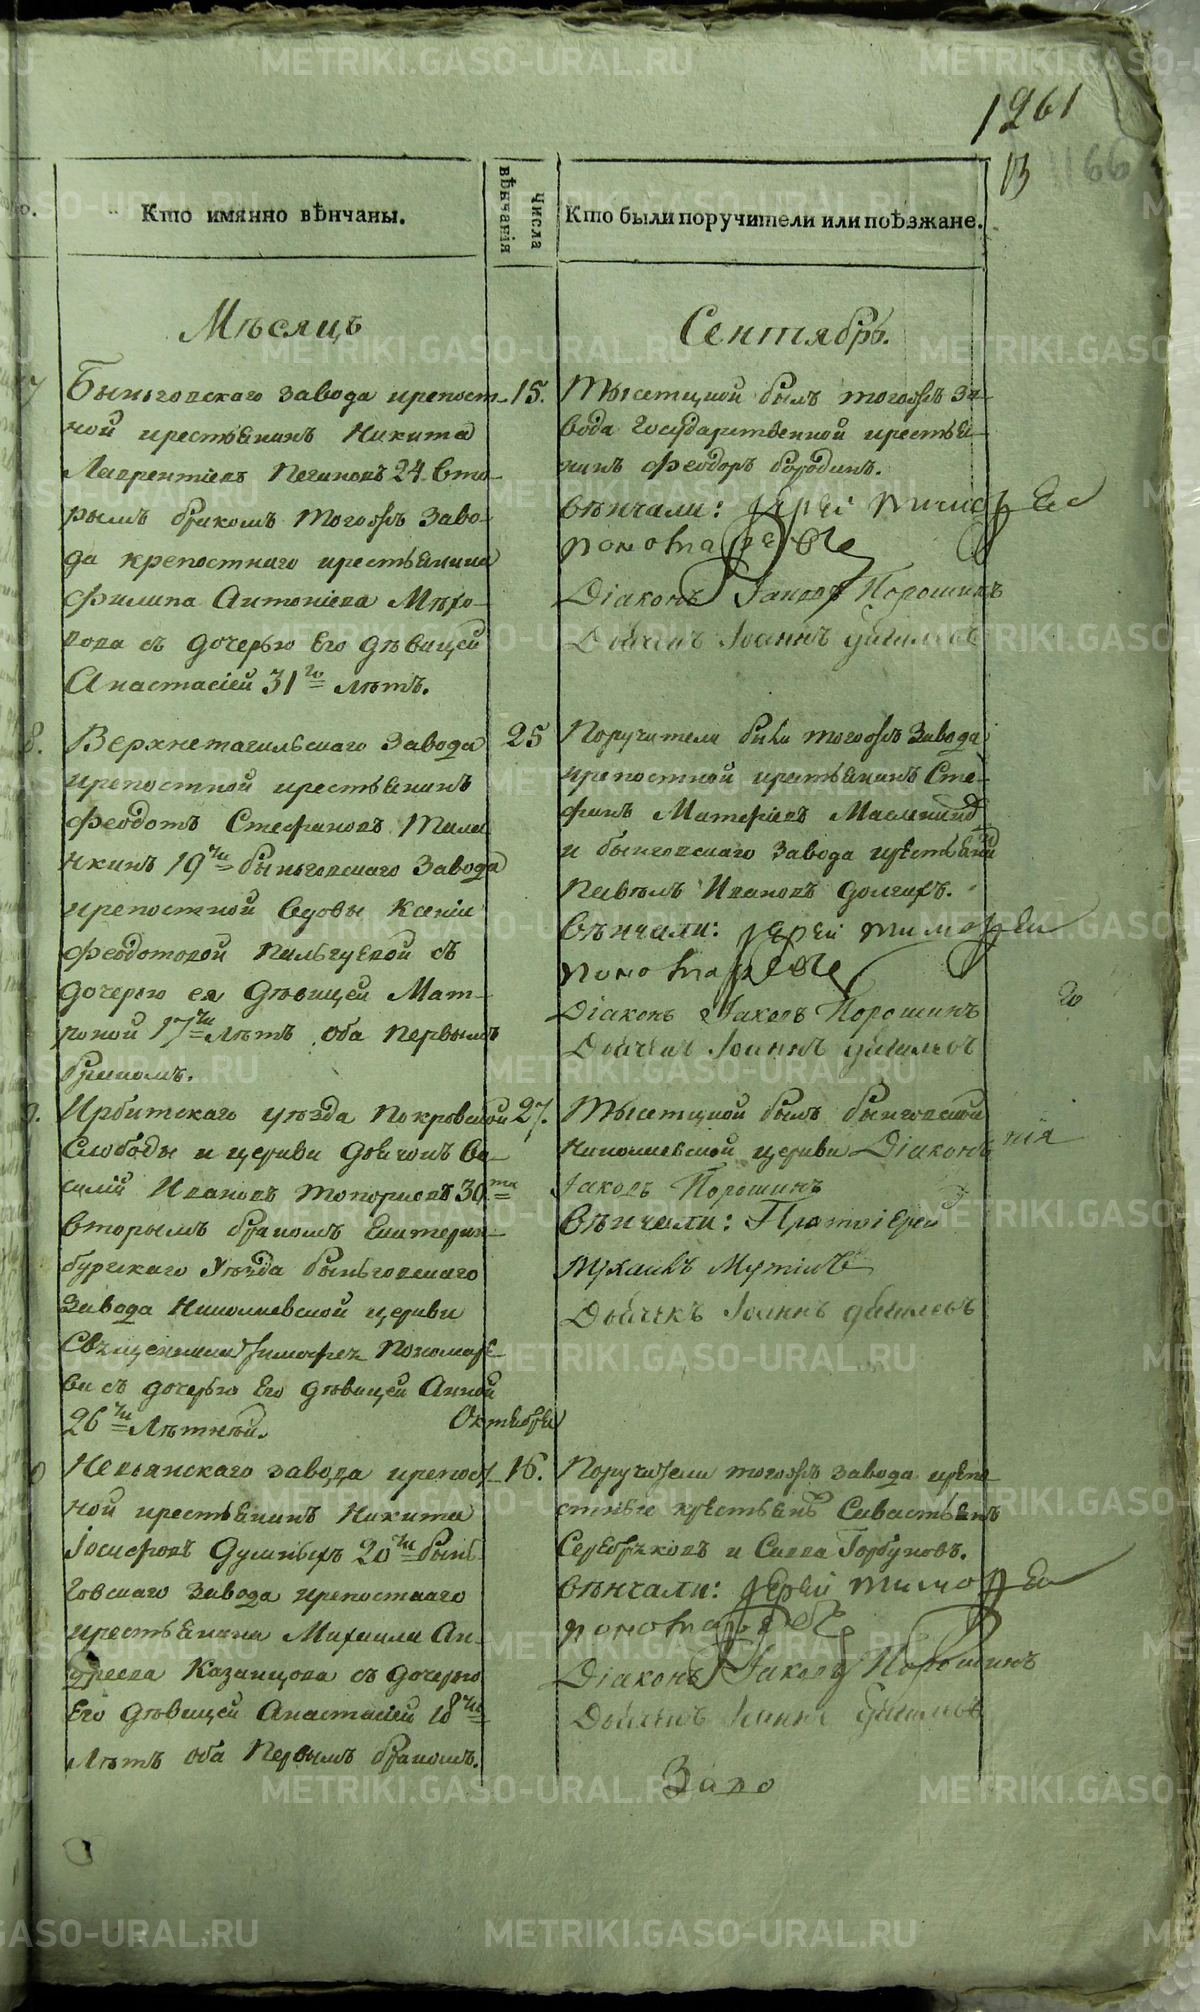 1261
13 1166
Кто имянно вѣнчаны.
Числа вѣнчанія
Кто были поручители или поѣзжане.
Мѣсяцъ
Сентябрь.
7
Быньговскаго завода крепост-
ной крестьянинъ Никита
Лаврентіевъ 24. вто-
рымъ бракомъ тогожъ заво-
да крепостнаго крестьянина
Филипа Антоніева
съ дочерью его дѣвицей
Анастасіей 31го лѣтъ.
15.
Тысетцкой былъ тогожъ за-
вода государственной крестья-
нинъ Феодоръ Бородинъ.
Вѣнчали: Іерей Тимофей
Пономаревъ
Діаконъ Іаковъ Порошинъ
Дьячекъ Іоаннъ
8.
Верхнетагильскаго завода
крепостной крестьянинъ
Феодотъ Стефановъ
19ти Быньговскаго завода
крепостной вдовы Ксеніи
Феодотовой съ
дочерью ея дѣвицей Мат-
роной 17ти лѣтъ оба первымъ
бракомъ.
25
Поручители были тогожъ завода
крепостной крестьянинъ Сте-
фанъ
и Быньговскаго завода крестьяни
Павелъ Ивановъ Долгихъ.
Вѣнчали: Іерей Тимофей
Пономаревъ
Діаконъ Іаковъ Порошинъ
Дьячекъ Іоаннъ
9.
Ирбитскаго уѣзда Покровской
Слободы и церкви дьячокъ Ва-
силій Ивановъ Топорковъ 30ти
вторымъ бракомъ Екатерин-
бургскаго уѣзда Быньговскаго
завода Николаевской церкви
Священника Тимофея Пономаре-
ва съ дочерью его дѣвицей Анной
26ти лѣтней.
27.
Тысетцкой былъ Быньговской
Николаевской церкви Діаконъ
Іаковъ Порошинъ
Вѣнчали: Протоіерей
Дьячекъ Іоаннъ
Октября
Невьянскаго завода крепост-
ной крестьянинъ Никита
Іосифовъ 20ти Бынь-
говскаго завода крепостнаго
крестьянина Михаила Ан-
дреева Казанцова съ дочерью
его дѣвицей Анастасіей 18ти
лѣтъ оба первымъ бракомъ.
16.
Поручители тогожъ завода крепо-
стные крестьяне Савастьянъ
Серебряковъ и Савва Горбуновъ.
Вѣнчали: Іерей Тимофей
Пономаревъ
Діаконъ Іаковъ Порошинъ
Дьячекъ Іоаннъ
METRIKI.GASO-URAL.RU